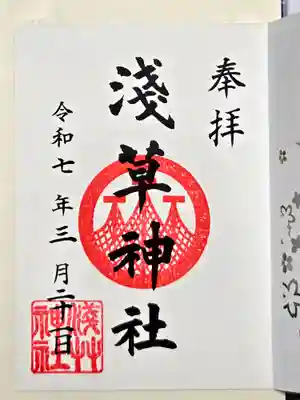 奉拝
淺草神社
令和七年三月二十一日
淺草
神社